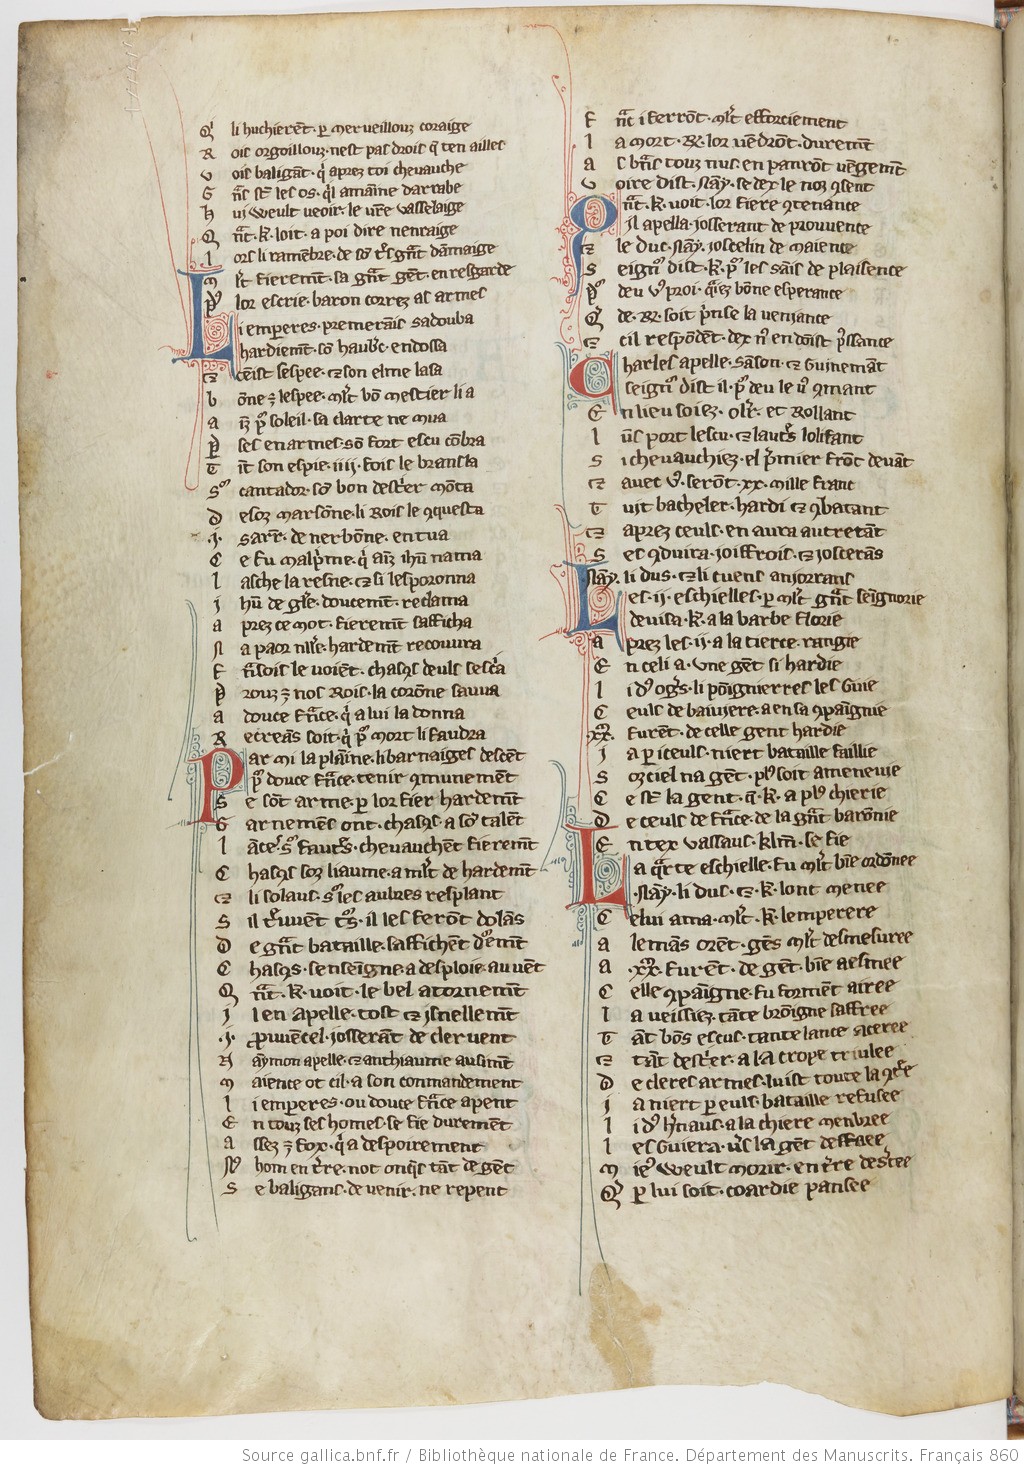 Q' li huchierēt · ꝑ merveillouz coraige
R ois orgoillouz · nest pas drois q̄ ten ailles
v ois baligāt · q̍ aprez toi chevauche
G n̄s st̄ les os · q̍l amaine darrabe
h ui weult veoir · le vr̄e vasselaige
Q n̄t · k̄ · loit · a poi dire nenraige
l ors li ramēbre · de sō t̄rs gn̄t dāmaige
m lt̄ fierem̄t · sa gn̄t gēt · en resgarde
lor escrie · baron correz as armes
L i emꝑeres · premerains sadouba
hardiem̄t · sō haub̄c · endossa
ꝫ cēist sespee · ꝫ son elme lasa
b ōne ē lespee · ml̄t bō mestier li a
a īz p̄ soleil · sa clarte ne mua
P ses en armes · sō fort escu cōbra
T īt son espie · iiii · fois le bransla
S' cantador · sō bon dest̄er mōta
D esoz marsōne · li rois le ꝯquesta
· J · sarr̄ · de nerbōne · en tua
C e fu malp̄me · q̍ aīz ih̄u nama
l asche la resne · ꝫ si lesporonna
J h̄u de gl̄e · doucem̄t · reclama
a prez ce mot · fierem̄t safficha
N a paor nul̄e · hardem̄t recouvra
F n̄sois le voiēt · chasꝯs deuls sesc̄a
P rouz ē nos rois · la corōne sauva
a douce fn̄ce · q̍ a lui la donna
R ecreās soit · q̍ p̄ mort li faudra
P ar mi la plaīne · li barnaiges descēt
p̄ douce fn̄ce · tenir ꝯmunemēt
S e sōt arme · ꝑ lor fier hardem̄t
G arnemēs ont · chasꝯs a sō talēt
l āces fors · chevauchēt fierem̄t
C hasꝯs soz liaume · a ml̄t de hardem̄t
ꝫ li solaus · s' les aubres resplant
S il t̄ruvēt · il les ferōt dolās
D e gn̄t bataille · saffichēt d'emēt
C hasꝯs · senseīgne · a desploie · au vēt
Q n̄t · k̄ · voit · le bel atornemēt
J l en apelle · tost ꝫ isnellem̄t
· J · provencel · josserant de clervent
N aymon apelle · ꝫ anthiaume ausim̄t
m aience ot cil · a son commandement
l i emperes · ou douce fn̄ce apent
E n touz ses homes · se fie duremēt
A ssez ē fox · q̍ a despoirement
N' hom en t̄re · not onq̍s tāt de gēt
S e baligans · devenir · ne repent
F n̄c i ferrōt · ml̄t efforciement
l a mort · R̄ · lor vēdrōt · durem̄t
a s bn̄s touz nus · en panrōt vēgem̄t
v oire dist · nāy · se dex le noz ꝯsent
Q n̄t · k̄ · voit · lor fiere ꝯtenance
Jl apella · josserant de prouvence
ꝫ le duc · nāy · joscelin de maience
S eign' dist · k̄ · p̄ les saīs de plaisence
P' deu v' proi · q̍iez bōne esperance
Q̄ de · R̄ · soit p̍nse la venjance
ꝫ cil respōdēt · dex n' en doīst p̍ssance
C harles apelle · sāson · ꝫ guinemāt
seign' dist il · p̄ deu le v' ꝯmant
E n lieu soiez · ol̄r · et rollant
l ūs port lescu · ꝫ laut̄s lolifant
S i chevauchiez · el p̍mier frōt devāt
ꝫ avec v' · serōt · xx · mille franc
T uit bacheler · hardi ꝫ ꝯbatant
ꝫ aprez ceuls · en aura autretāt
S es ꝯduira · joiffrois · ꝫ joscerās
nāy · li dus · ꝫ li cuens anjorrans
L es · ij · eschielles · ꝑ ml̄t gn̄t seīgnorie
devisa · k̄ · a la barbe florie
A prez les · ij · a la tierce · rangie
E n celi a · une gēt si hardie
l i d' ogs · li poīgnierres les guie
C euls de baiviere · a en sa ꝯpaīgnie
· xx · furēt · de celle gent hardie
J a ꝑ iceuls · niert bataille faillie
S oz ciel na gēt · pl' soit amenevie
C e st̄ la gent · q̄ · k̄ · a pl' chierie
D e ceuls de fn̄ce · de la gn̄t barōnie
E n tex vassaus · klm̄ · se fie
L a q̄rte eschielle · fu ml̄t bn̄e ordōnee
· nāy · li dus · ꝫ · k̄ · lont menee
C elui ama · ml̄t · k̄ · lemperere
a lemās orēt · gēs ml̄t desmesuree
a · xx · furēt · de gēt · bn̄e aesmee
C elle ꝯpaīgne · fu formēt airee
l a veissiez · tāte broīgne saffree
T āt bōs escus · tante lance aceree
ꝫ tāt dest̄er · a la crope triulee
D e cleres armes · luist toute la ꝯt̄ee
J a niert ꝑ euls · bataille refusee
l i d' h̄naus · a la chiere menbree
l es guiera · v̄s la gēt deffaee
m ie' weult morir · en t̄re dest̄ee
Q̄ ꝑ lui soit · coardie pansee
Source gallica.bnf.fr / Bibliothèque nationale de France. Département des Manuscrits. Français 860